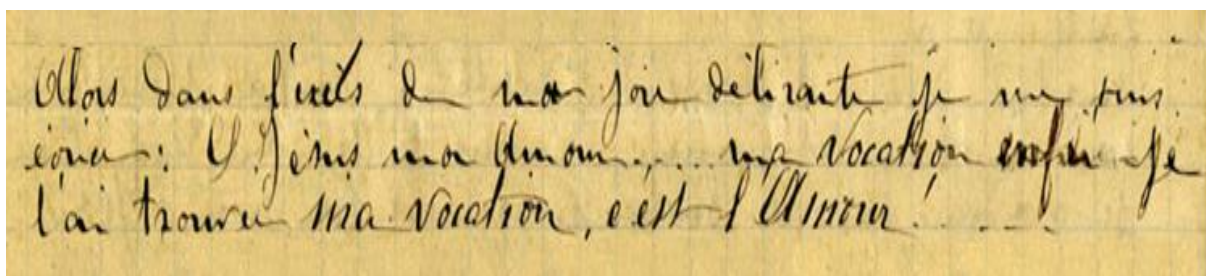 Alors dans l'excès de ma joie délirante je me suis
écriée : O Jésus mon Amour..... ma vocation enfin je
l'ai trouvée ma vocation, c'est l'Amour !.....